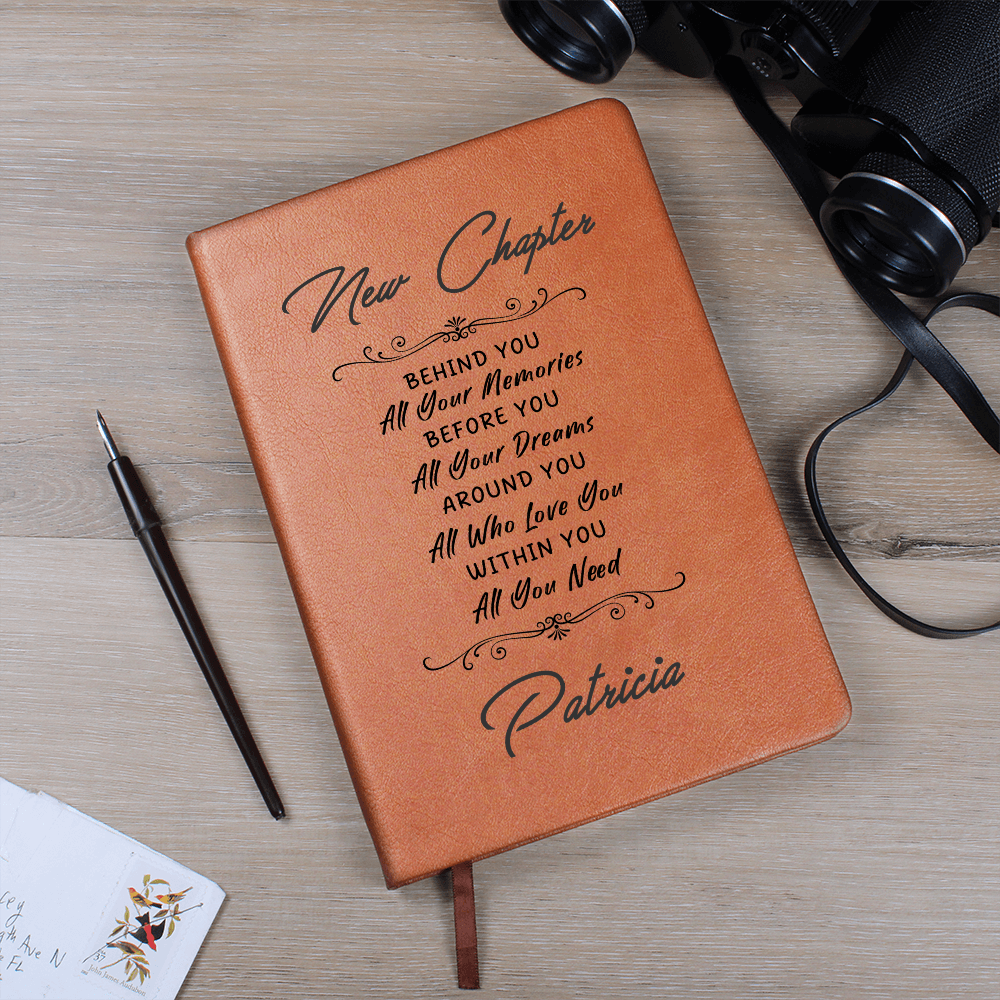 New Chapter
BEHIND YOU
All Your Memories
BEFORE YOU
All Your Dreams
AROUND YOU
All Who Love You
WITHIN YOU
All You Need
Patricia
cey
Ave N
FL
37
John James Audubon